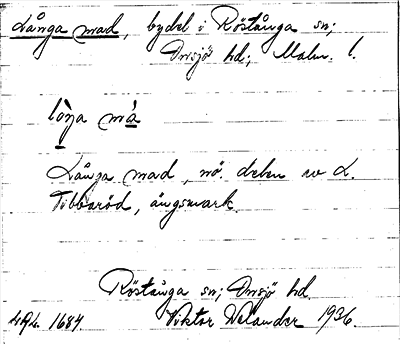 Långa mad, bydel i Röstånga sn;
Onsjö hd; Malm. l.
lòŋa má
Långa mad, nö. delen av L.
Tibbaröd, ängsmark.
Röstånga sn; Onsjö hd.
1684 Viktor Welander 1936.